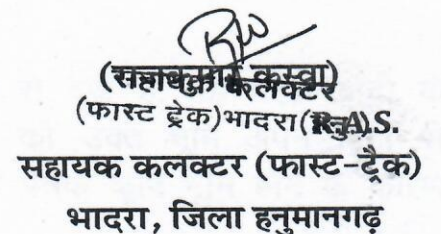 (राजकुमार कस्वा)
सहायक कलक्टर
(फास्ट ट्रेक)भादरा(R.A.S.
सहायक कलक्टर (फास्ट-ट्रैक)
भादरा, जिला हनुमानगढ़